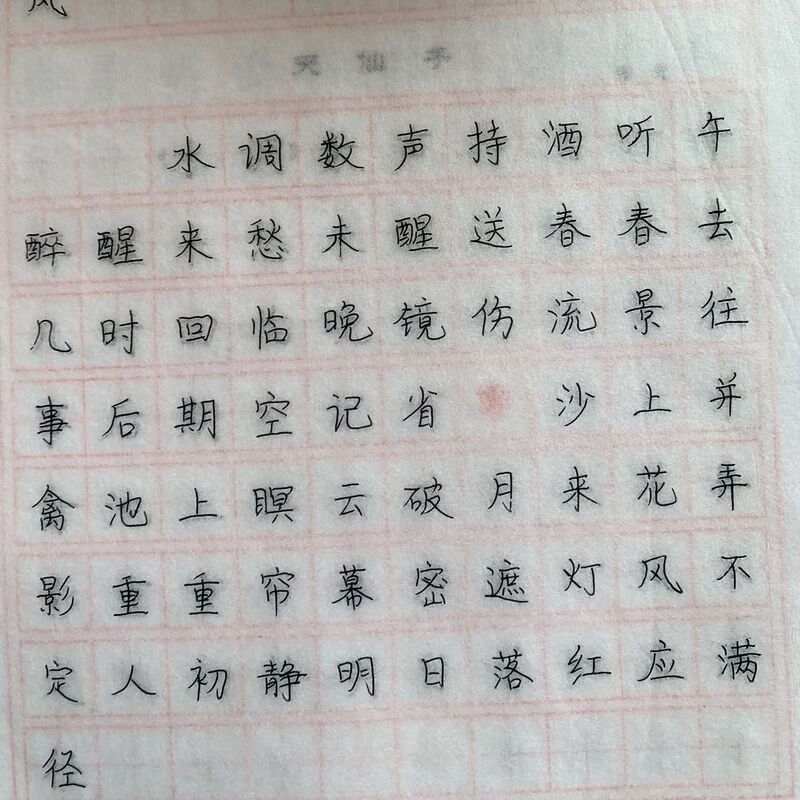 风
天仙子
水调数声持酒听午
醉醒来愁未醒送春春去
几时回临晚镜伤流景往
事后期空记省 沙上并
禽池上瞑云破月来花弄
影重重帘幕密遮灯风不
定人初静明日落红应满
径